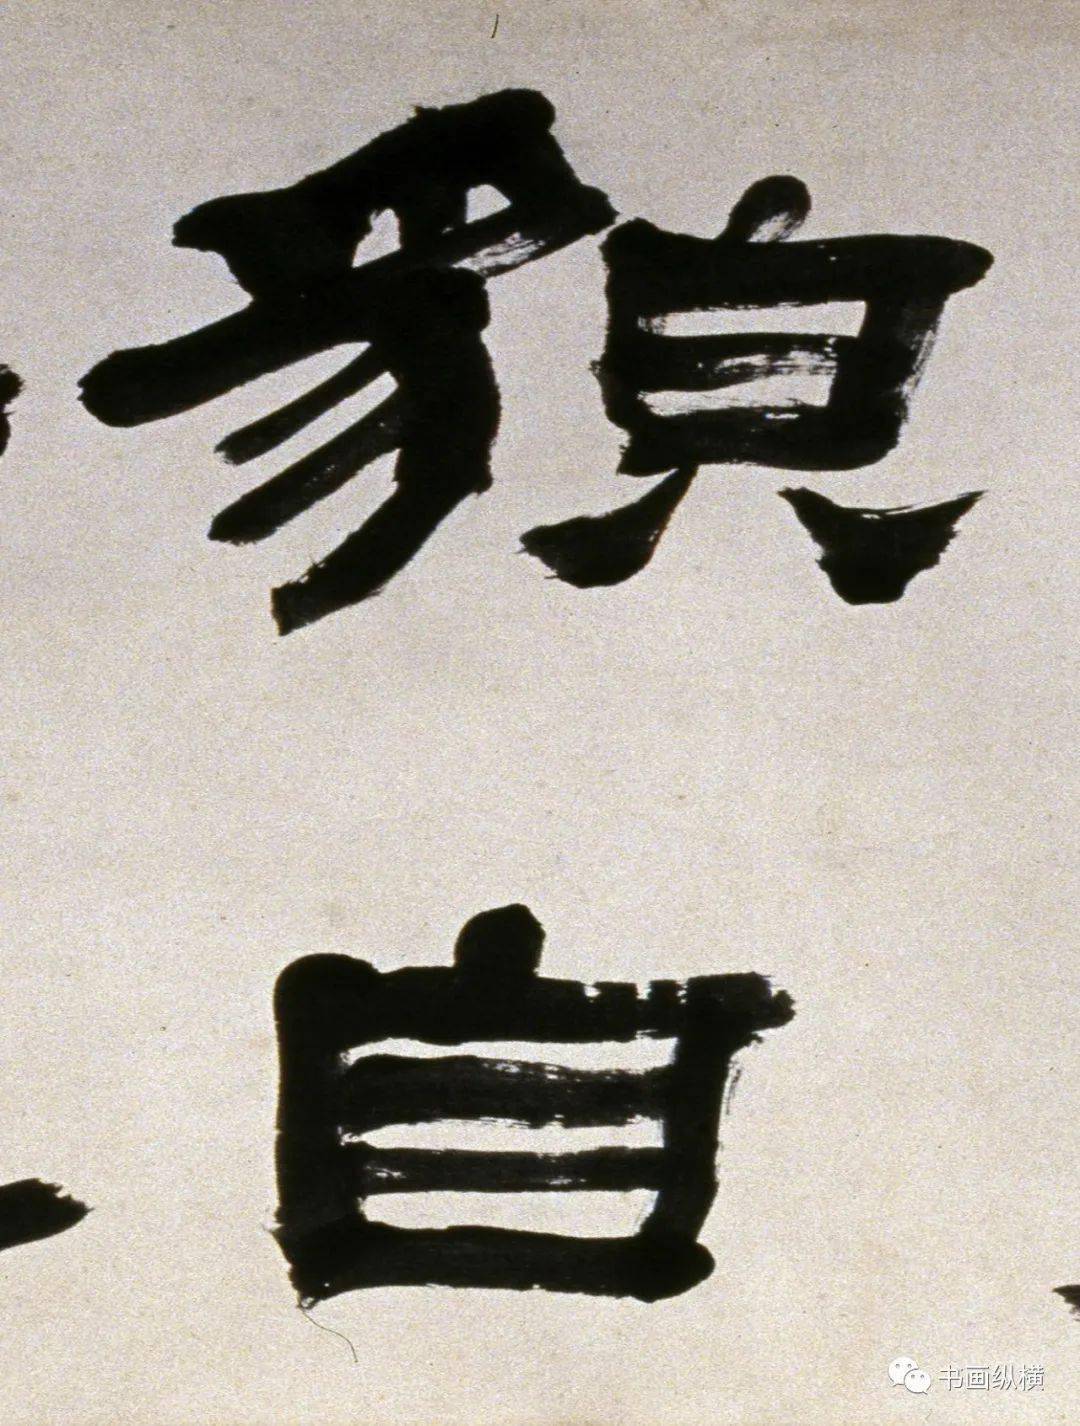 貌
自
书画纵横